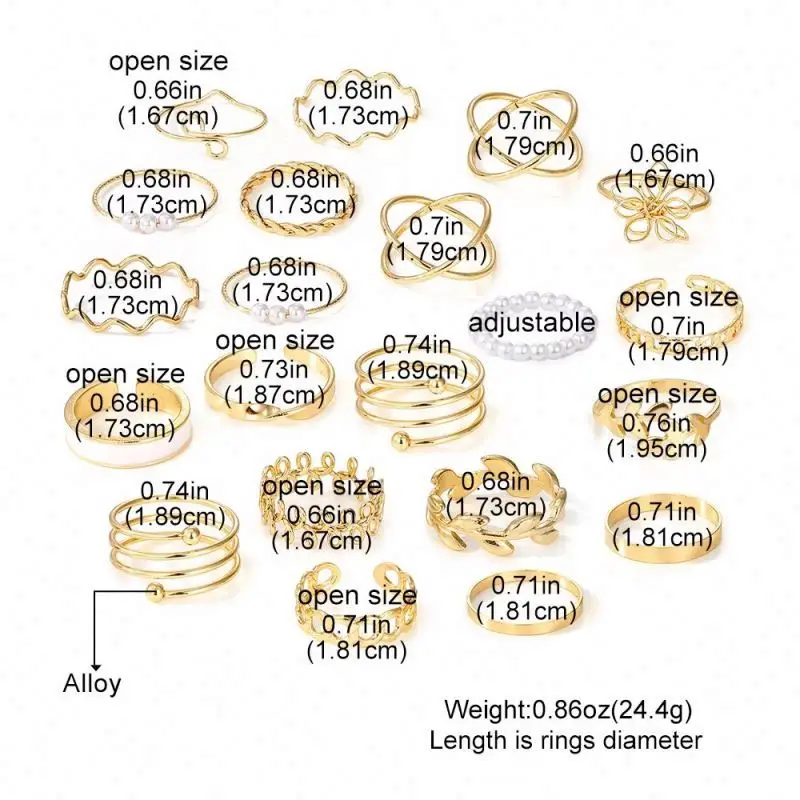 open size
0.66in
(1.67cm)
0.68in
(1.73cm)
0.7in
(1.79cm)
0.66in
(1.67cm)
0.68in
(1.73cm)
0.68in
(1.73cm)
0.7in
(1.79cm)
0.68in
(1.73cm)
0.68in
(1.73cm)
adjustable
open size
0.7in
(1.79cm)
open size
0.68in
(1.73cm)
open size
0.73in
(1.87cm)
0.74in
(1.89cm)
open size
0.76in
(1.95cm)
0.74in
(1.89cm)
open size
0.66in
(1.67cm)
0.68in
(1.73cm)
0.71in
(1.81cm)
open size
0.71in
(1.81cm)
0.71in
(1.81cm)
Alloy
Weight:0.86oz(24.4g)
Length is rings diameter